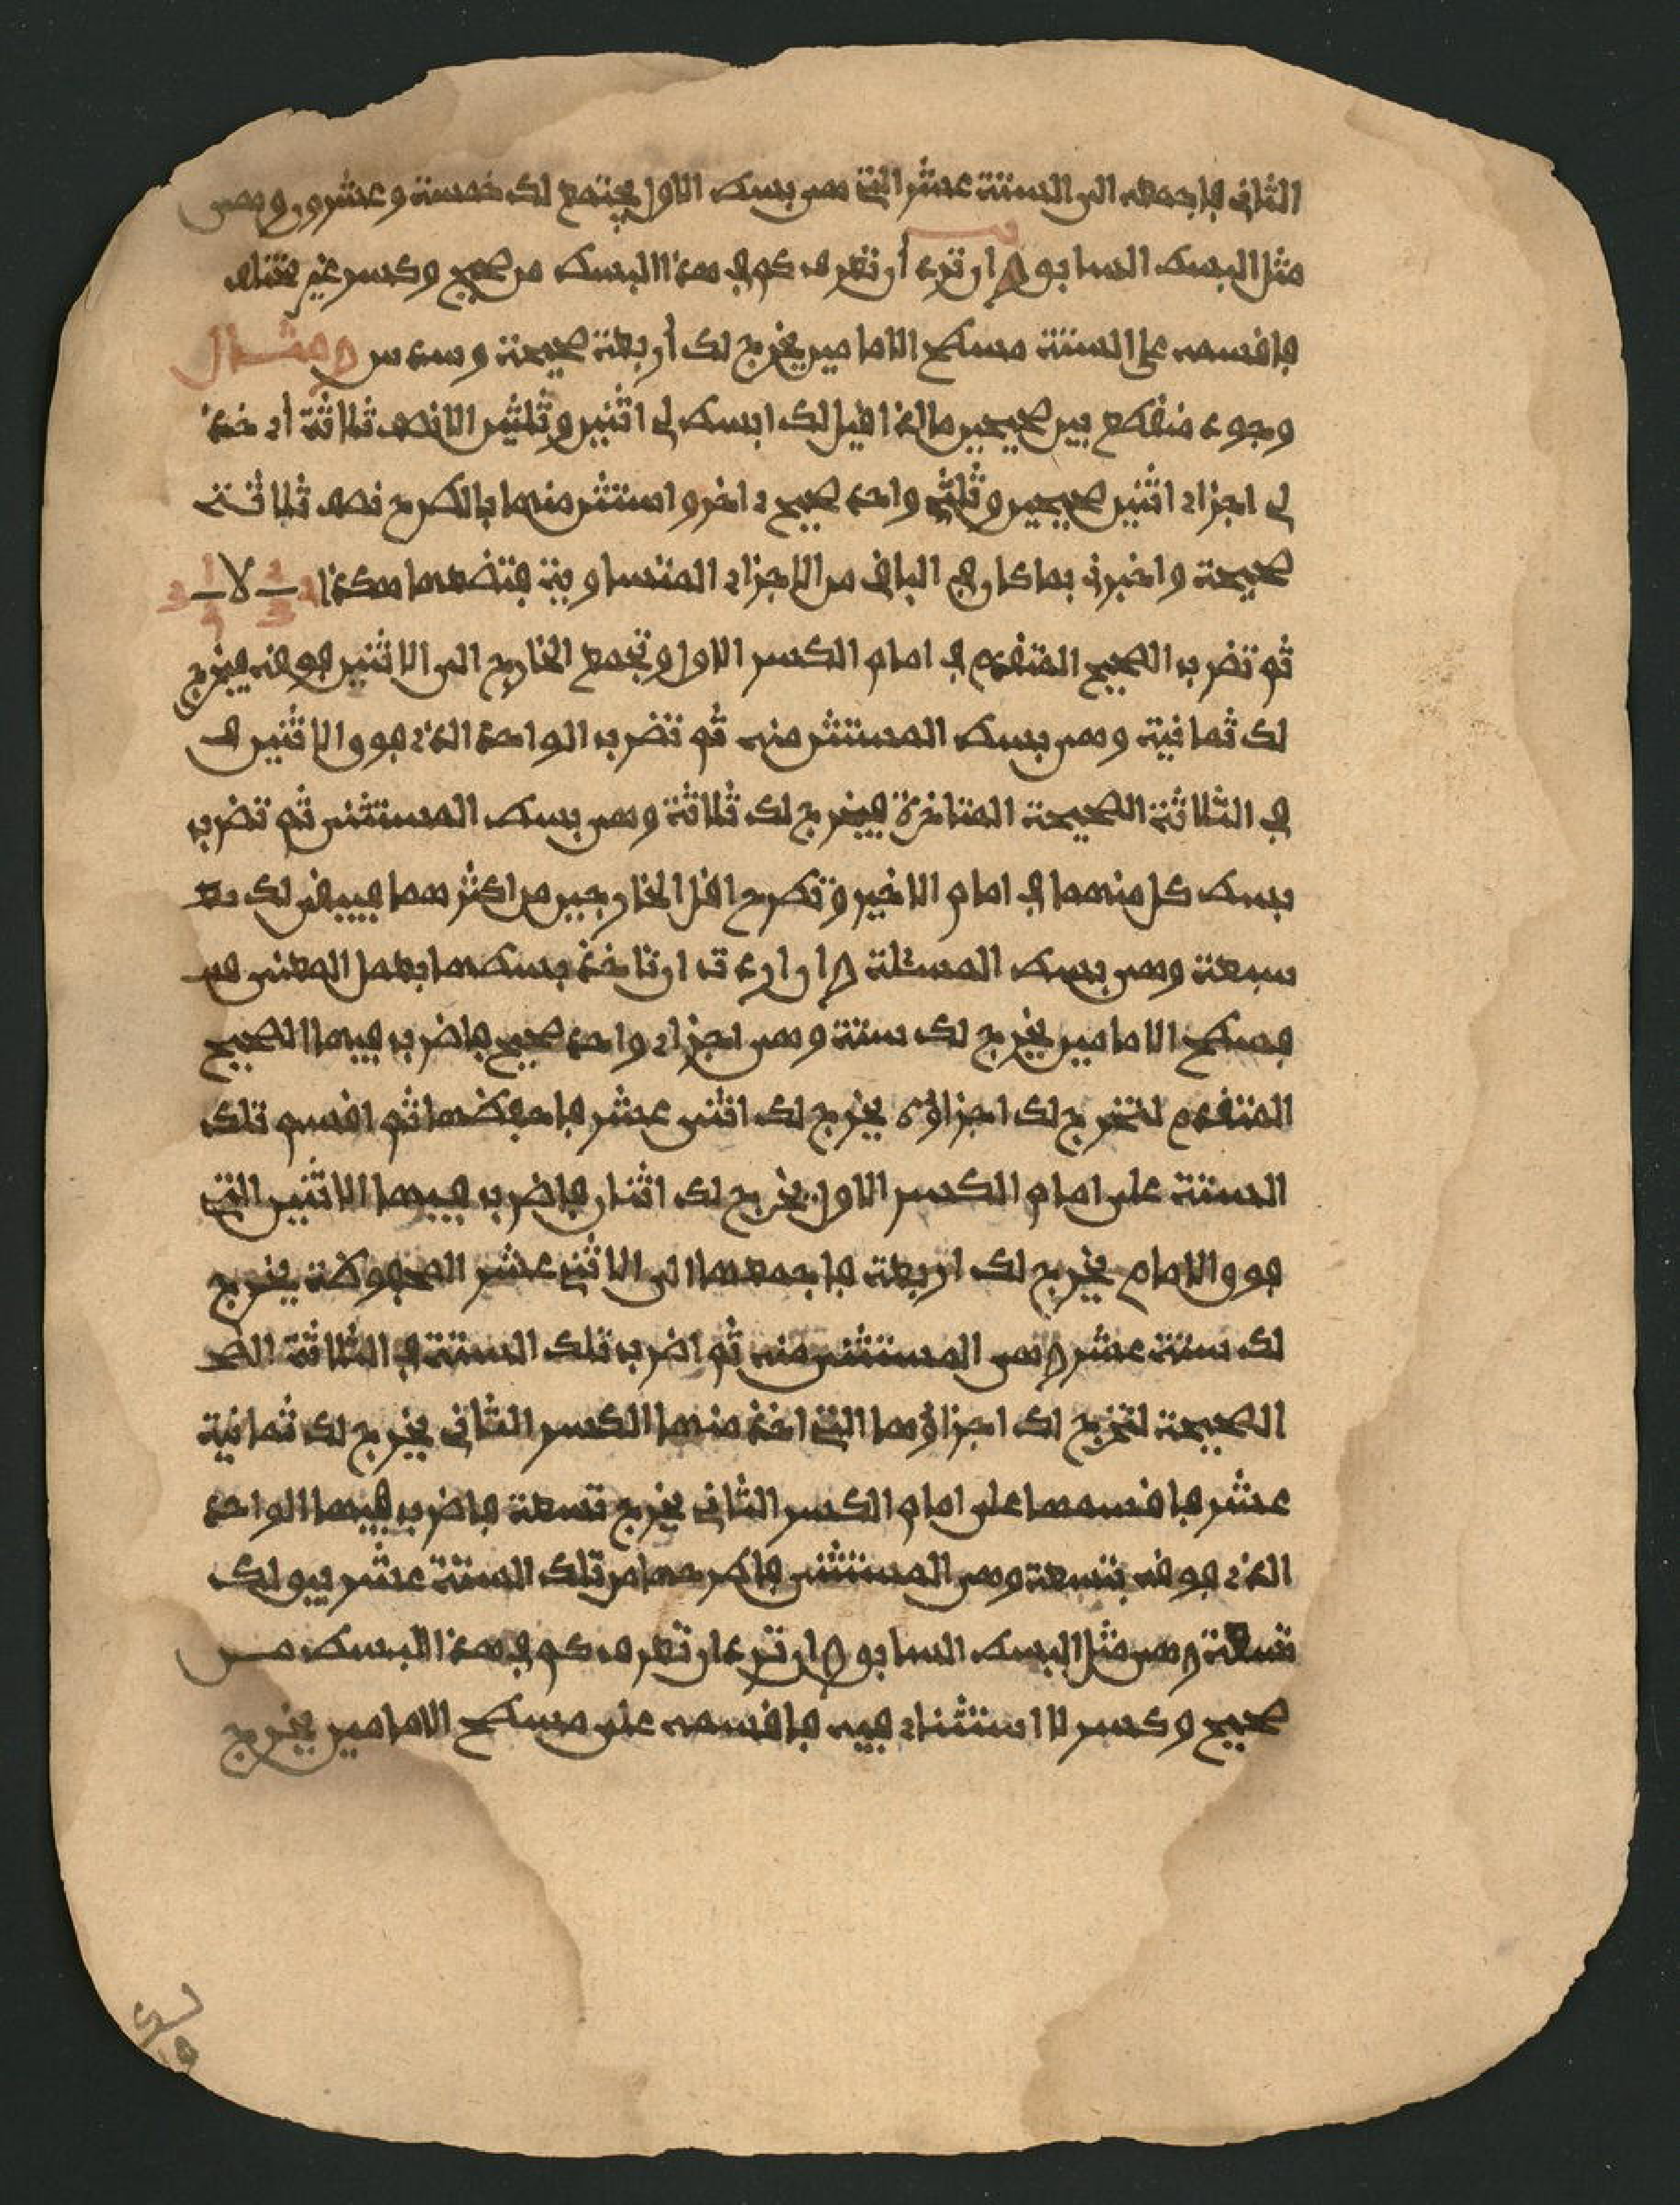 الثاني فاجمعه الى الستة عشر التي هي بسط الاول يجتمع لك خمسة وعشرون وهي
مثل البسط السابق وان ترد أن تعرف كم في هذا البسط من صحيح وكسر غير
فاقسمه على الستة مسطح الامامين يخرج لك أربعة صحيحة وسدس ومثال
وجود منقطع بين صحيحين ما اذا قيل لك ابسط لي اثنين وثلثين الا نصف ثلاثة أي خذ
لي اجزاء اثنين صحيحين وثلثي واحد صحيح ءاخر واستثن منها بالطرح نصف ثلاثة
صحيحة واخبرني بما كان في الباقي من الاجزاء المتساوية فتضعها هكذا 2 2/3 لا 1/2 3
ثم تضرب الصحيح المتقدم في امام الكسر الاول وتجمع الخارج الى الاثنين فوقه فيخرج
لك ثمانية وهي بسط المستثنى منه ثم تضرب الواحد الذي فوق الاثنين في
في الثلاثة الصحيحة المتاخرة فيخرج لك ثلاثة وهي بسط المستثنى ثم تضرب
بسط كل منهما في امام الاخير وتطرح اقل الخارجين من اكثرهما فيبقى لك
سبعة وهي بسط المسئلة وان اردت ان تاخذ بسطها بعمل المعنى
فسطح الامامين يخرج لك ستة وهي اجزاء واحد صحيح فاضرب فيها الصحيح
المتقدم لتخرج لك اجزاؤه يخرج لك اثنى عشر فاحفظها ثم اقسم تلك
الستة على امام الكسر الاول يخرج لك اثنان فاضرب فيهما الاثنين التي
فوق الامام يخرج لك اربعة فاجمعها الى الاثني عشر المحفوظة يخرج
لك ستة عشر وهي المستثنى منه ثم اضرب تلك الستة في الثلاثة الصـ
الصحيحة لتخرج لك اجزاؤها التي اخذ منها الكسر الثاني يخرج لك ثمانية
عشر فاقسمها على امام الكسر الثاني يخرج تسعة فاضرب فيها الواحد
الذي فوقه بتسعة وهي المستثنى فاطرحها من تلك الستة عشر يبق لك
سبعة وهي مثل البسط السابق وان ترد ان تعرف كم في هذا البسط من
صحيح وكسر لا استثناء فيه فاقسمه على مسطح الامامين يخرج